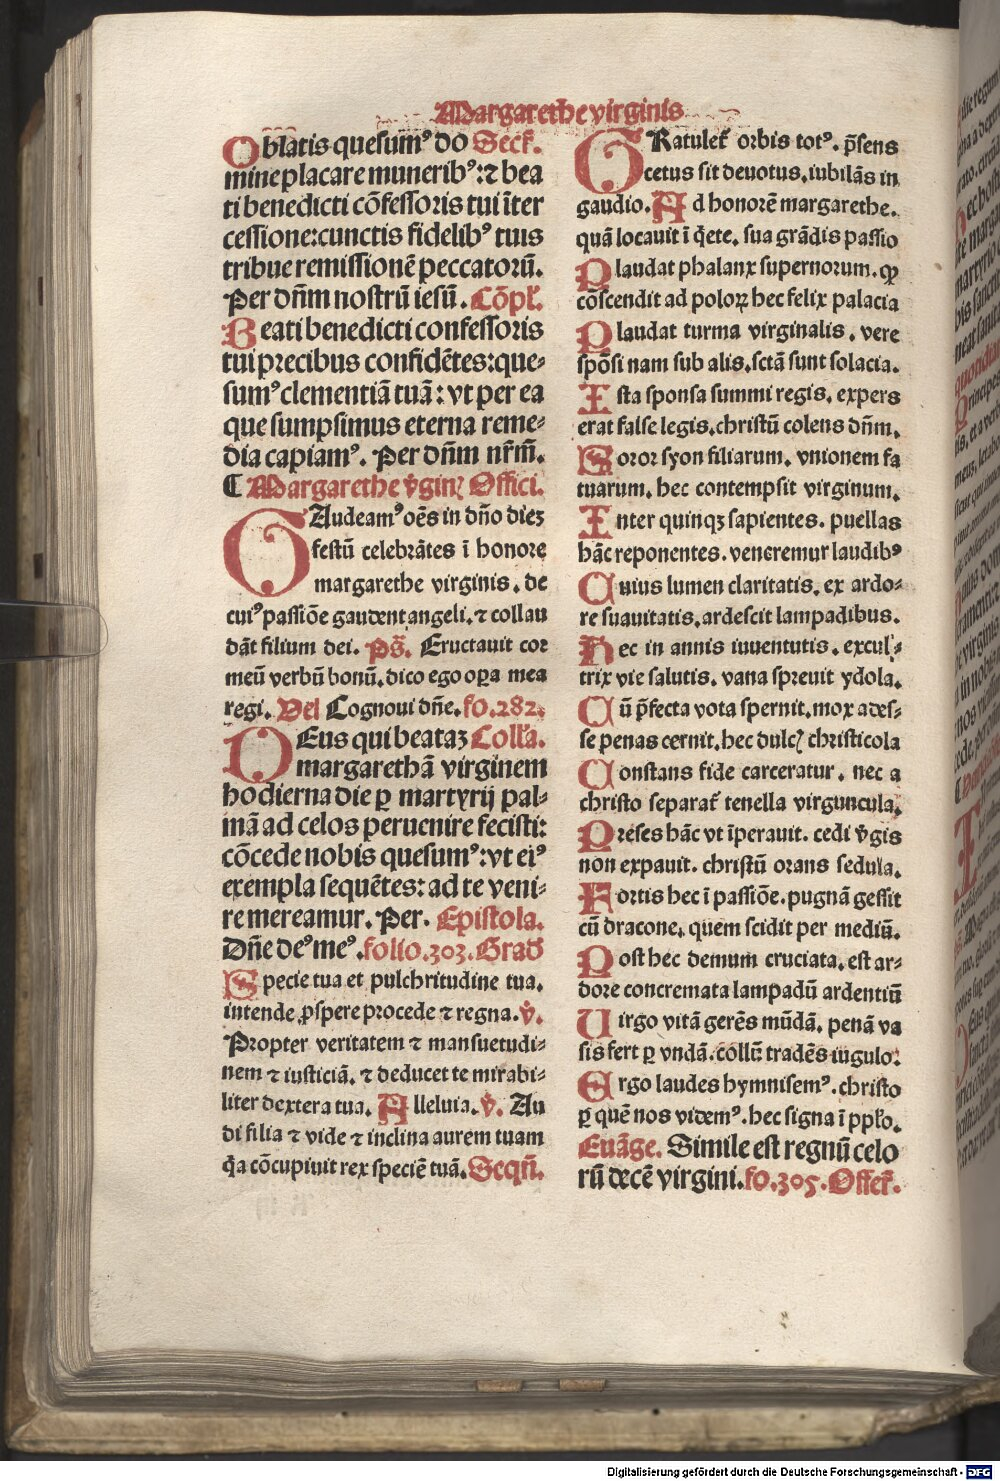 Margarethe virginis
Oblatis quesumꝰ do Secr̃.
mine placare muneribꝰ: ⁊ bea
ti benedicti cõfessoris tui ĩter
cessione: cunctis fidelibꝰ tuis
tribue remissionẽ peccatorũ.
Per dñm nostrũ iesũ. Cõpl̃.
Beati benedicti confessoris
tui precibus confidẽtes: que⸗
sumꝰ clementiã tuã: vt per ea
que sumpsimus eterna reme⸗
dia capiamꝰ. Per dñm nr̃m.
¶ Margarethe v̾gin̛ Offici.
GAudeamꝰ oẽs in dño diez
festũ celebrãtes ĩ honore
margarethe virginis. de
cuiꝰ passiõe gaudent angeli. ⁊ collau
dãt filium dei. Ps̃. Eructauit cor
meũ verbũ bonũ. dico ego oꝑa mea
regi. Vel Cognoui dñe. fo. 282.
DEus qui beataz Coll̃a.
margarethã virginem
hodierna die ꝑ martyrij pal⸗
mã ad celos peruenire fecisti:
cõcede nobis quesumꝰ: vt eiꝰ
exempla sequẽtes: ad te veni⸗
re mereamur. Per. Epistola.
Dñe deꝰ meꝰ. folio. 303. Grad̃
Specie tua et pulchritudine tua.
intende ꝓspere procede ⁊ regna. v̾.
Propter veritatem ⁊ mansuetudi⸗
nem ⁊ iusticiã. ⁊ deducet te mirabi⸗
liter dextera tua. Alleluia. v̾. Au
di filia ⁊ vide ⁊ inclina aurem tuam
q̃a cõcupiuit rex speciẽ tuã. Seqñ.
GRatulet̃ orbis totꝰ. p̃sens
cetus sit deuotus. iubilãs in
gaudio. Ad honorẽ margarethe.
quã locauit ĩ q̃ete. sua grãdis passio
Plaudat phalanx supernorum. ꝙ
cõscendit ad poloꝝ hec felix palacia
Plaudat turma virginalis. vere
spõsi nam sub alis. sctã sunt solacia.
Ista sponsa summi regis. expers
erat false legis. christũ colens dñm.
Soror syon filiarum. vnionem fa
tuarum. hec contempsit virginum.
Inter quinqꝫ sapientes. puellas
hãc reponentes. veneremur laudibꝰ
Cuius lumen claritatis. ex ardo⸗
re suauitatis. ardescit lampadibus.
Hec in annis iuuentutis. excul⸗
trix vie salutis. vana spreuit ydola.
Cũ p̃fecta vota spernit. mox aces⸗
se penas cernit. hec dulc̛ christicola
Constans fide carceratur. nec a
christo separat̃ tenella virguncula.
Preses hãc vt ĩperauit. cedi v̾gis
non expauit. christũ orans sedula.
Fortis hec ĩ passiõe. pugnã gessit
cũ dracone. quem scidit per mediũ.
Post hec demum cruciata. est ar⸗
dore concremata lampadũ ardentiũ
Uirgo vitã gerẽs mũdã. penã va
sis fert ꝑ vndã. collũ tradẽs iugulo:
Ergo laudes hymnisemꝰ. christo
ꝑ quẽ nos videmꝰ. hec signa ĩ pp̃lo.
Euãge. Simile est regnũ celo
rũ decẽ virgini. fo. 305. Offer̃.
Digitalisierung gefördert durch die Deutsche Forschungsgemeinschaft - DFG